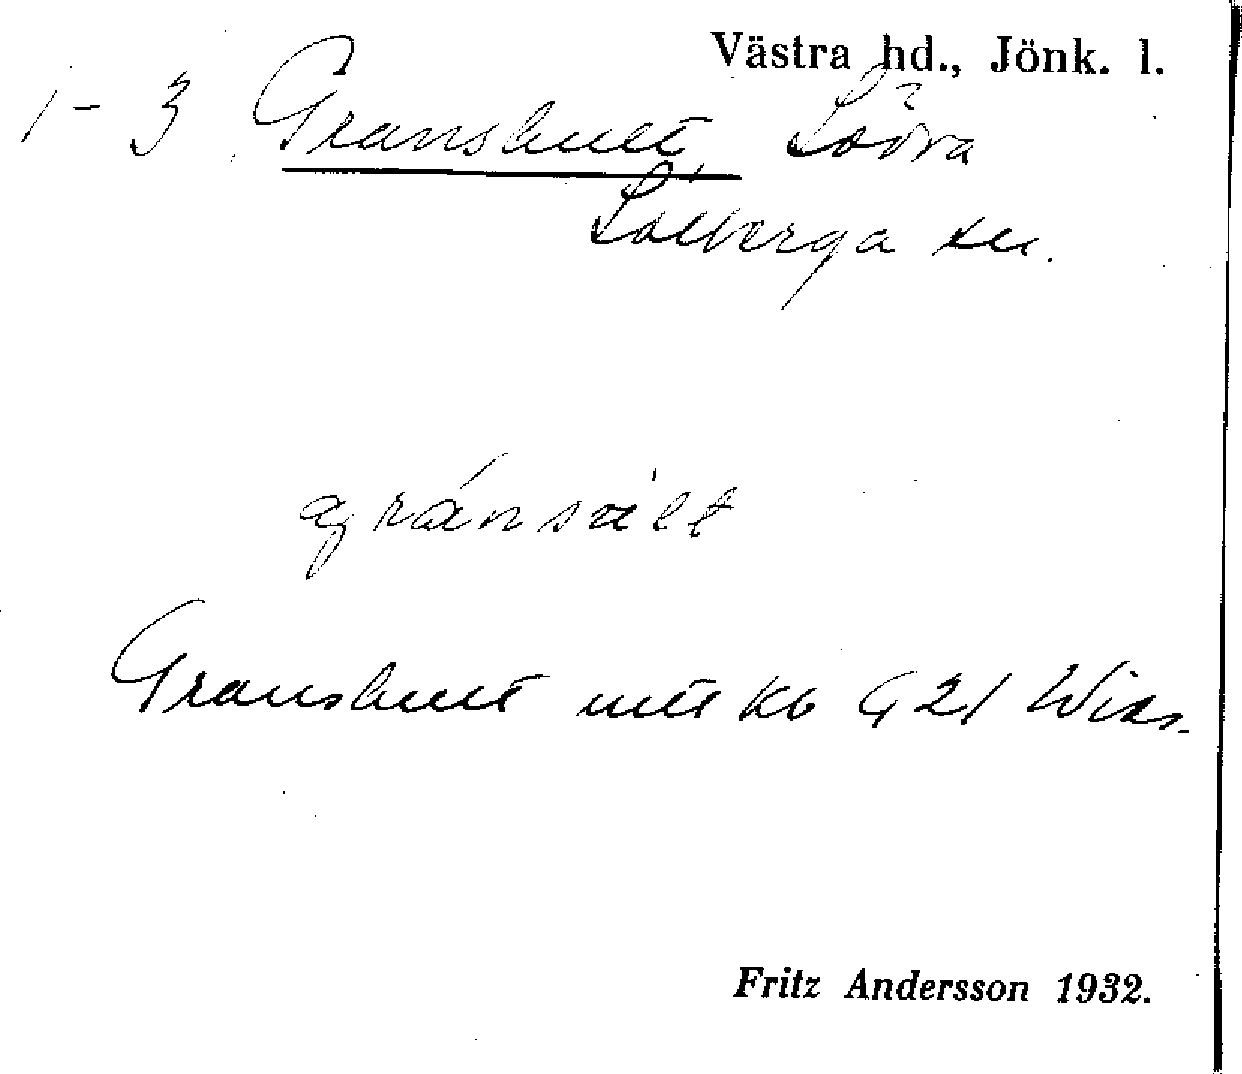 Västra hd., Jönk. l.
1-3 Granshult, Södra
Solberga sn.
gránsált
Granshult mtl kb G 21 Wids.
Fritz Andersson 1932.